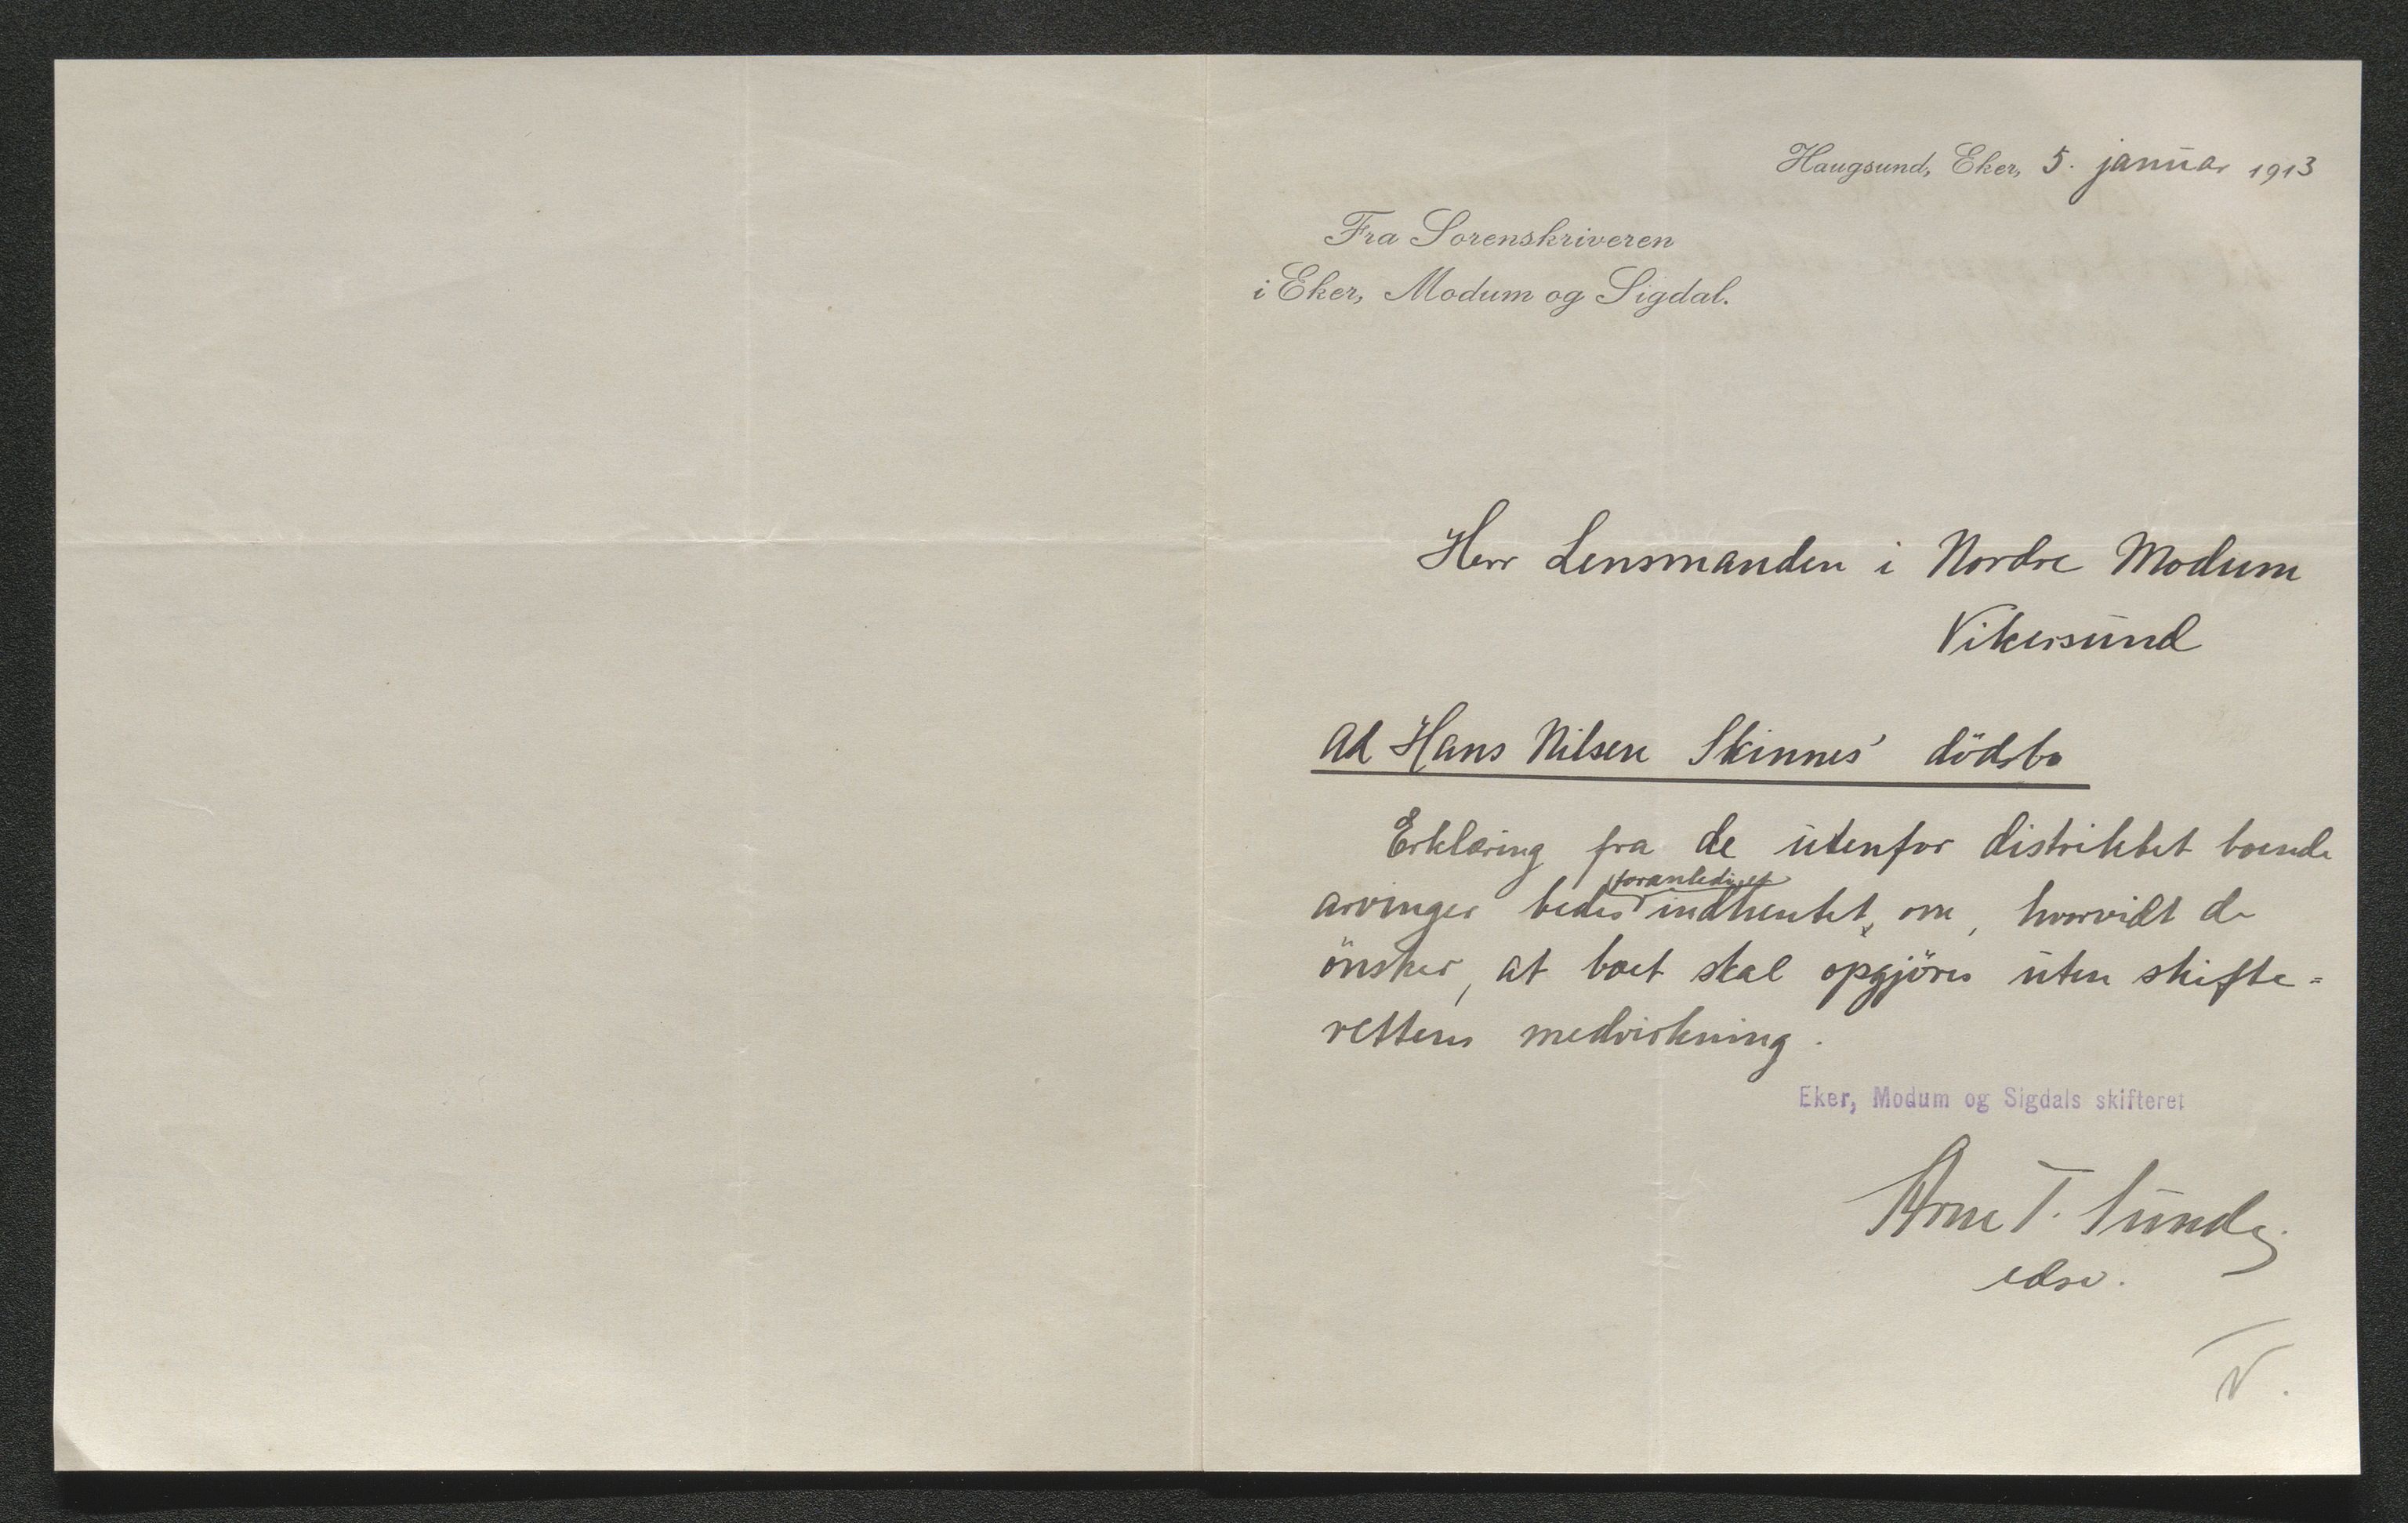 Haugsund, Eker, 5. januar 1913
Fra Sorenskriveren
i Eker, Modum og Sigdal.
Herr Lensmanden i Nordre Modum
Vikersund
Ad Hans Nilsen Skinnes' dödsbo
Erklæring fra de utenfor distriktet boende
foranlediget
arvinger bedes indhentet, om, hvorvidt de
önsker, at boet skal opgjöres uten skifte=
rettens medvirkning.
Eker, Modum og Sigdals skifteret
Arne T. Sunde
edsv.